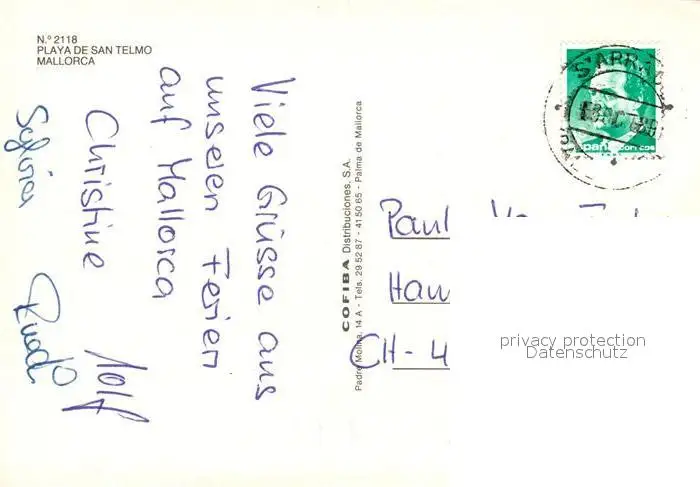 N.º 2118
PLAYA DE SAN TELMO
MALLORCA
Viele Grüsse aus
unseren Ferien
auf Mallorca
Christine Rolf
Sylvia Ruedi
COFIBA Distribuciones, S.A.
Padre Molina, 14 A - Tels. 29 52 87 - 41 50 65 - Palma de Mallorca
S'ARRA
Paul
CH-4
privacy protection
Datenschutz